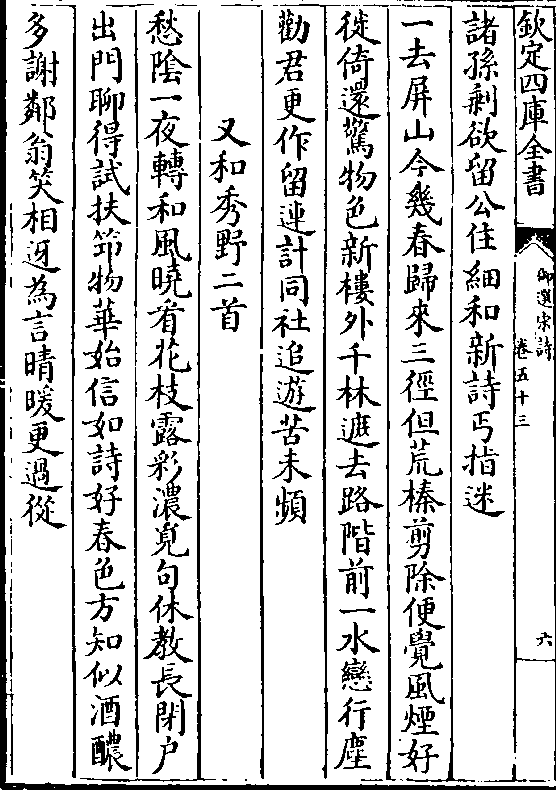 欽定四庫全書
御選宋詩
卷五十三
六
諸孫剩欲留公住細和新詩丐指迷
一去屏山今幾春歸來三徑但荒榛剪除便覺風煙好
徙倚還驚物色新樓外千林遮去路階前一水戀行塵
勸君更作留連計同社追遊苦未頻
又和秀野二首
愁陰一夜轉和風曉看花枝露彩濃覓句休教長閉户
出門聊得試扶笻物華始信如詩好春色方知似酒醲
多謝鄰翁笑相迓為言晴暖更過從